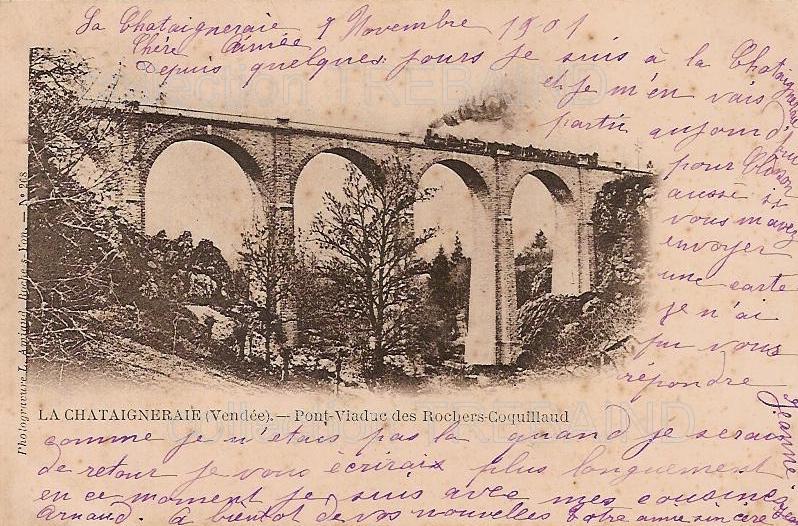 La Chataigneraie 7 Novembre 1901
Chère Aimée
Depuis quelques jours je suis à la Chataigneraie
et je m'en vais
partir aujourd'hui
pour Chinon
aussi si
vous m'avez
envoyer
une carte
je n'ai
pu vous
répondre
LA CHATAIGNERAIE (Vendée). — Pont-Viaduc des Rochers-Coquillaud
comme je n'étais pas là quand je serai
de retour je vous écrirais plus longuement
en ce moment je suis avec mes cousines
Arnaud. à bientôt de vos nouvelles Votre amie sincère
Jeanne
Photogravure L. Amiaud, Roche-s-Yon. — No 268
Collection TREBRAND